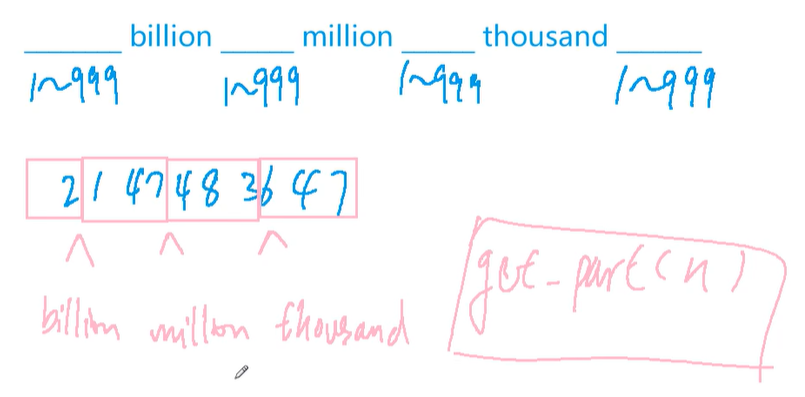 ______ billion _____ million _____ thousand ______
1~999 1~999 1~999 1~999
2 147 483 647
billion million thousand
get_part(n)